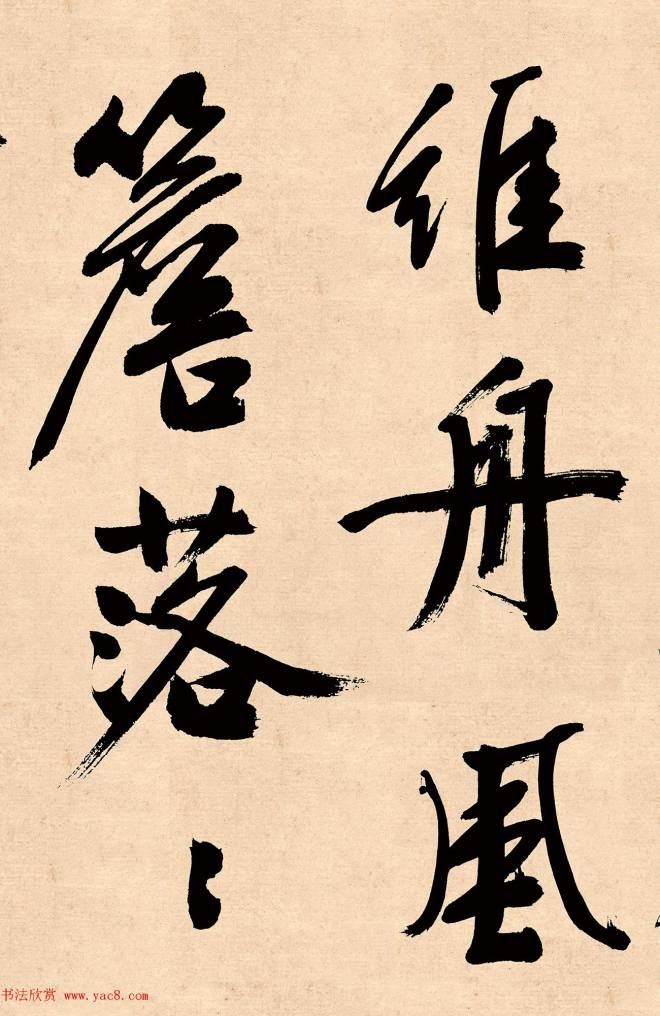 維舟風
簷落〻
书法欣赏 www.yac8.com